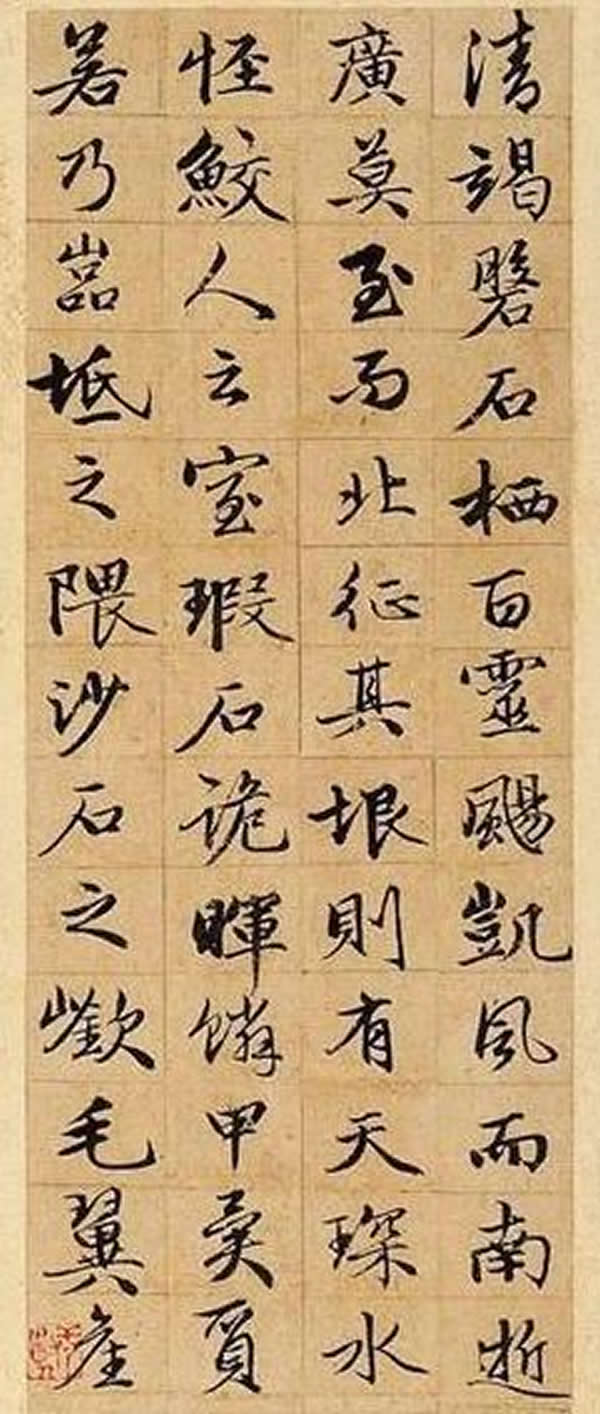 清竭磐石栖百靈颺凱風而南逝
廣莫至而北征其垠則有天琛水
怪鮫人云室瑕石詭暉鱗甲異質
若乃嵓坻之隈沙石之嶔毛翼產